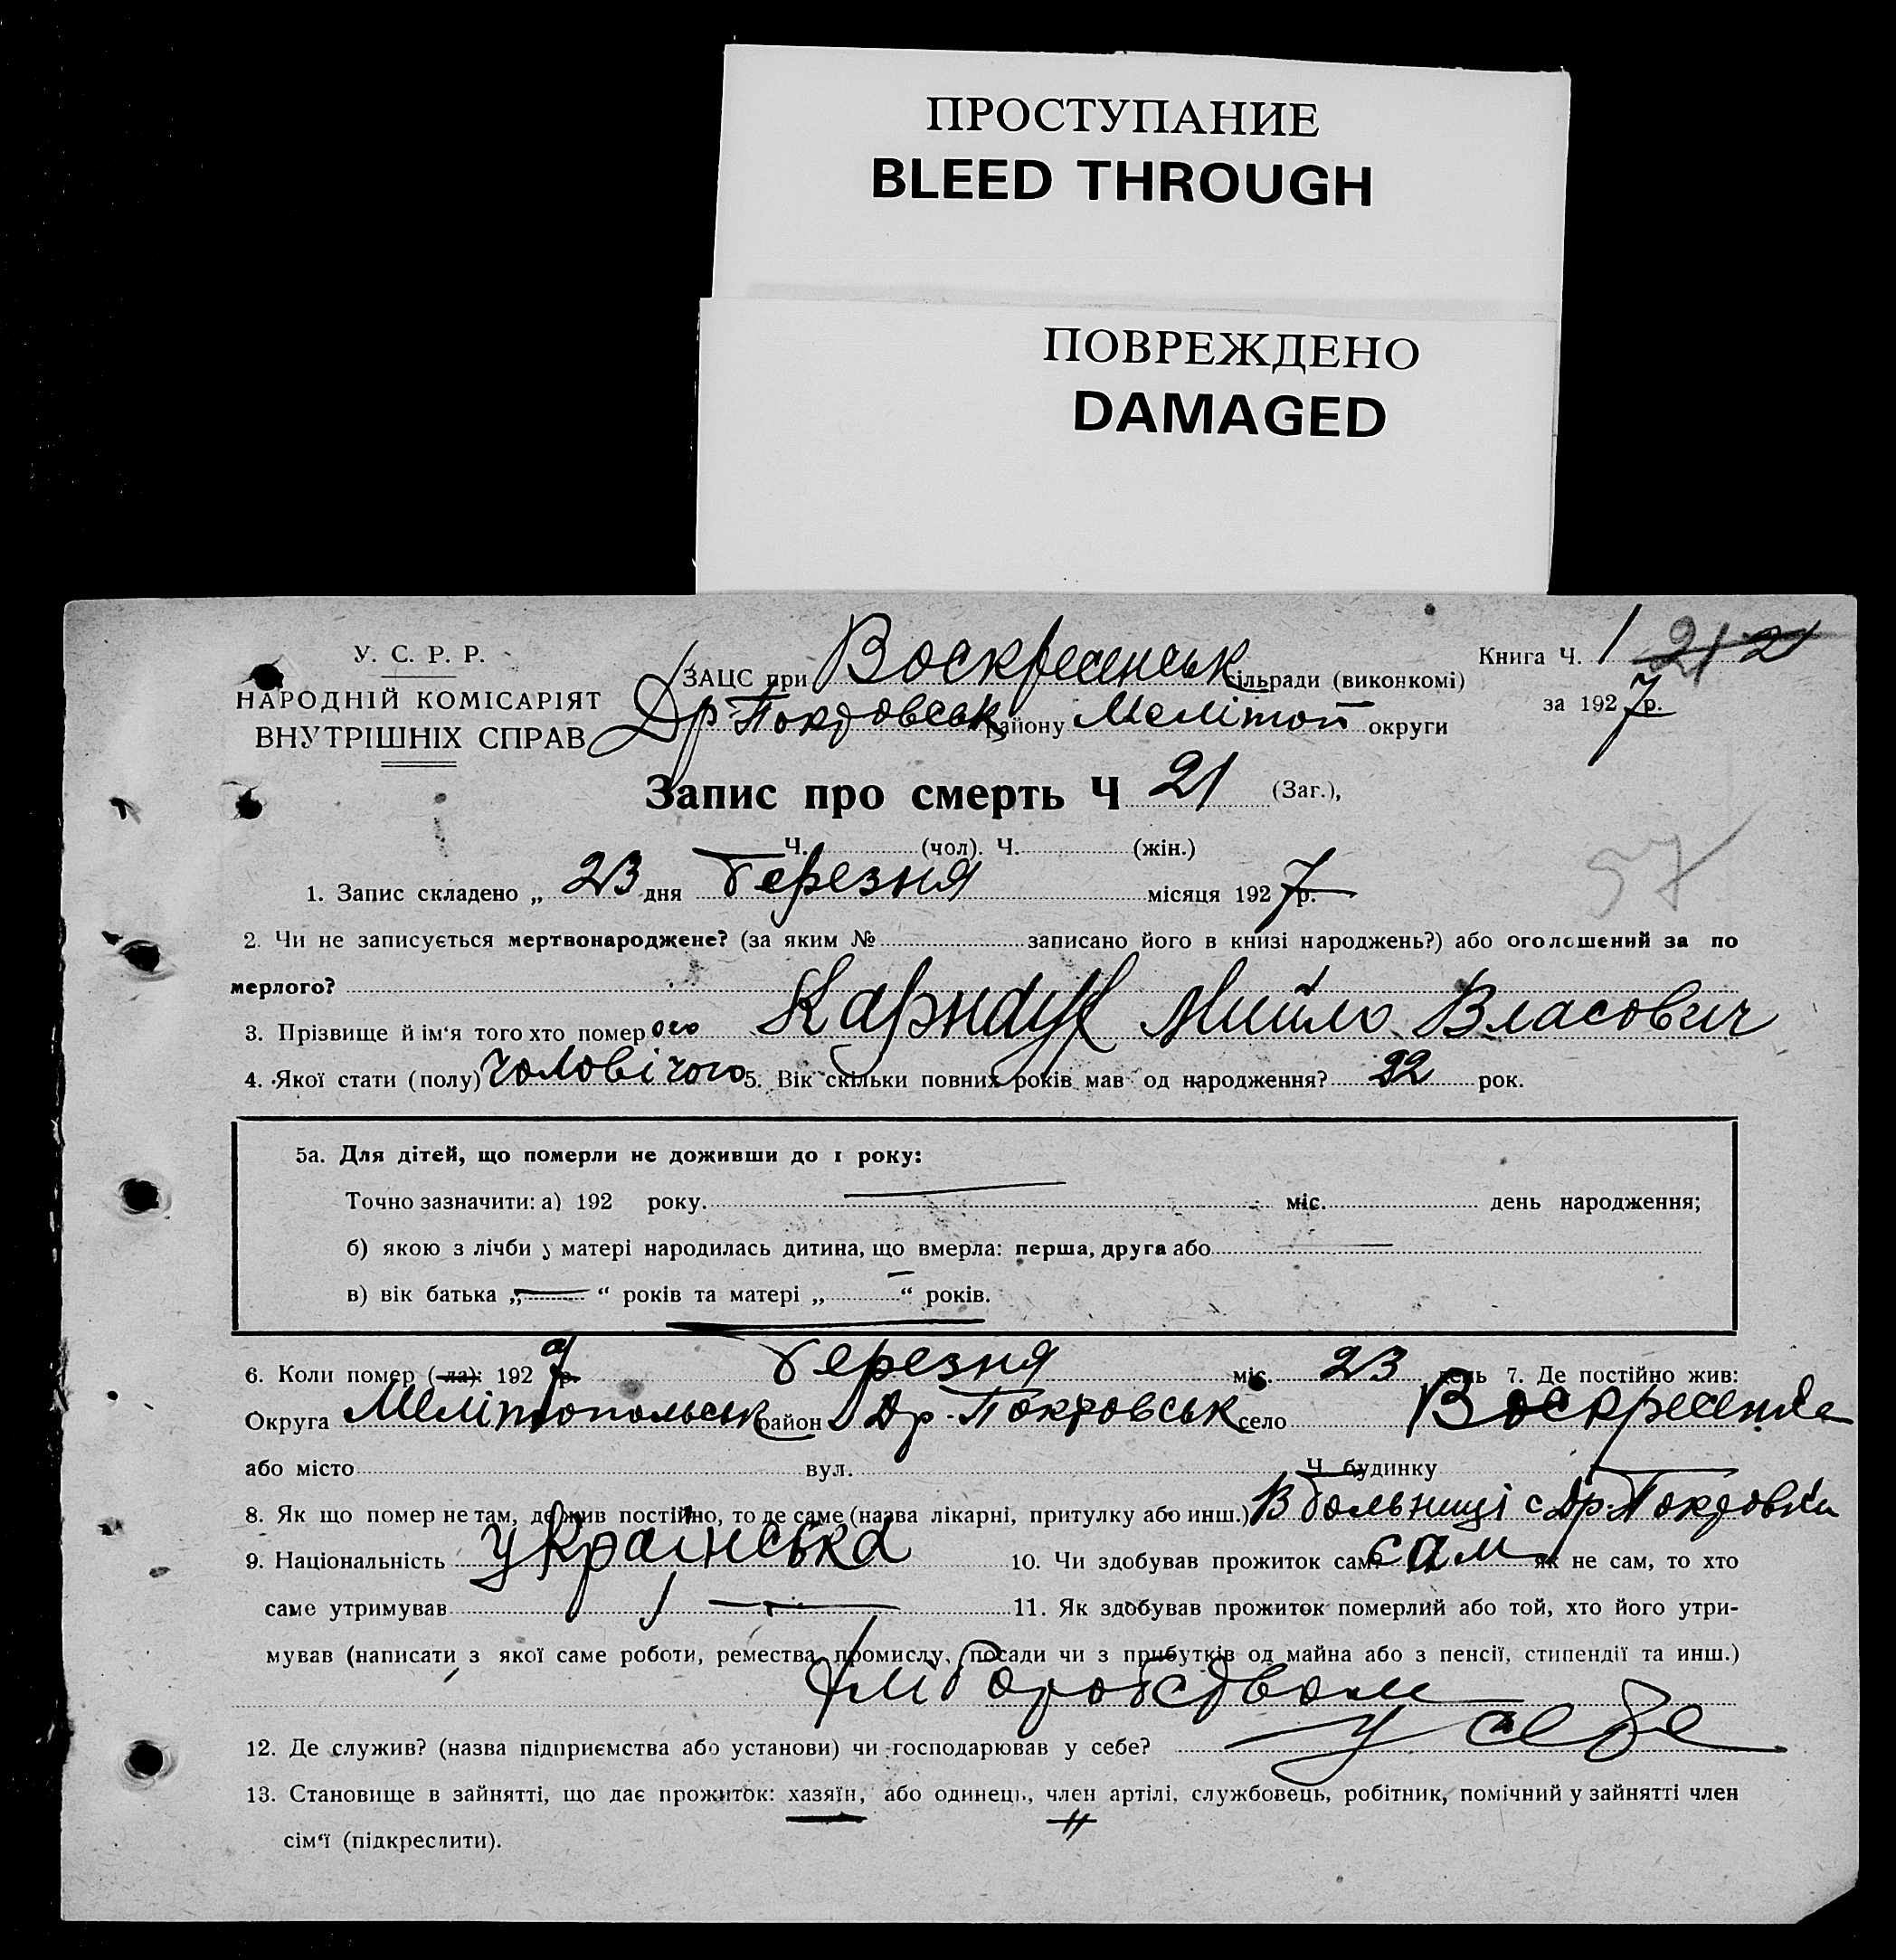 ПРОСТУПАНИЕ
BLEED THROUGH
ПОВРЕЖДЕНО
DAMAGED
У. С. Р. Р.
НАРОДНІЙ КОМІСАРІЯТ
ВНУТРІШНІХ СПРАВ
ЗАЦС при Воскресенськ сільради (виконкомі)
Др-Покровськ району Мелітоп округи
Книга Ч. 1 21 2
за 1927 р.
Запис про смерть Ч 21 (Заг.),
Ч. (чол). Ч. (жін.)
57
1. Запис складено „ 23 дня Березня місяця 1927 р.
2. Чи не записується мертвонароджене? (за яким № записано його в книзі народжень?) або оголошений за по
мерлого?
3. Прізвище й ім'я того хто помер ого Карнаух Власович
4. Якої стати (полу) чоловічого 5. Вік скільки повних років мав од народження? 22 рок.
5а. Для дітей, що померли не доживши до 1 року:
Точно зазначити: а) 192 року. міс. день народження;
б) якою з лічби у матері народилась дитина, що вмерла: перша, друга або
в) вік батька „ “ років та матері „ “ років.
6. Коли помер (ла): 1927 р. Березня міс. 23 день 7. Де постійно жив:
Округа Мелітопольськ район Др-Покровськ село Воскресенка
або місто вул. Ч. будинку
8. Як що помер не там, де жив постійно, то де саме (назва лікарні, притулку або инш.) В больниці с Др-Покровки
9. Національність українська 10. Чи здобував прожиток сам? сам як не сам, то хто
саме утримував 11. Як здобував прожиток померлий або той, хто його утри-
мував (написати з якої саме роботи, ремества, промислу, посади чи з прибутків од майна або з пенсії, стипендії та инш.)
12. Де служив? (назва підприємства або установи) чи господарював у себе? у себе
13. Становище в зайнятті, що дає прожиток: хазяїн, або одинець, член артілі, службовець, робітник, помічний у зайнятті член
сім'ї (підкреслити).